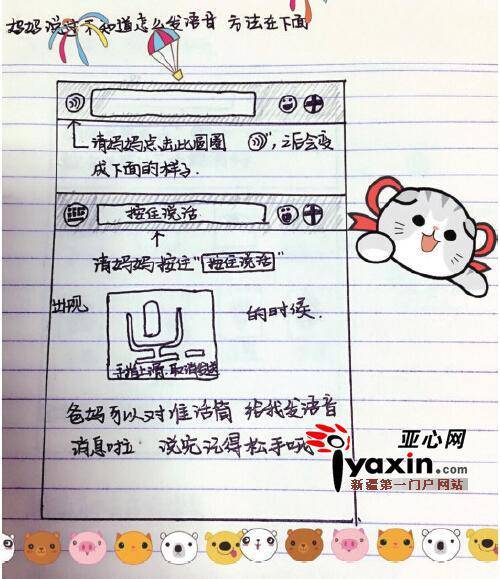 妈妈说过不知道怎么发语音 方法在下面
请妈妈点击此圆圈 ，之后会变
成下面的样子.
按住说话
请妈妈按住"按住说话"
出现
手指上滑.取消发送
的时候.
爸妈可以对准话筒 给我发语音
消息啦 说完记得松手哦
亚心网
iyaxin.com
新疆第一门户网站